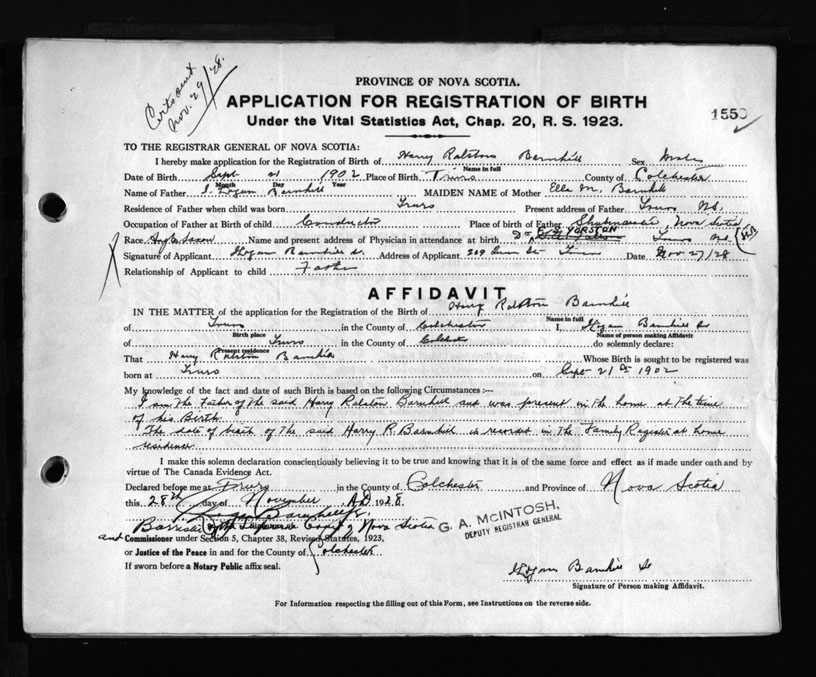 Certs out
Nov. 29/28.
PROVINCE OF NOVA SCOTIA.
APPLICATION FOR REGISTRATION OF BIRTH
Under the Vital Statistics Act, Chap. 20, R. S. 1923.
155
TO THE REGISTRAR GENERAL OF NOVA SCOTIA:
I hereby make application for the Registration of Birth of Harry Ralston Barnhill Sex Male
Name in full
Date of Birth Sept 21 1902 Place of Birth Truro County of Colchester
Month Day Year
Name of Father Logan Barnhill MAIDEN NAME of Mother Ella M. Barnhill
Residence of Father when child was born Truro Present address of Father Truro NS.
Occupation of Father at Birth of child Conductor Place of birth of Father Nova Scotia
Race Anglo Saxon Name and present address of Physician in attendance at birth Dr YORSTON Truro NS
Signature of Applicant Logan Barnhill Sr. Address of Applicant 209 St Truro Date Nov 27/28
Relationship of Applicant to child Father
AFFIDAVIT
IN THE MATTER of the application for the Registration of the Birth of Harry Ralston Barnhill
Name in full
of Truro in the County of Colchester I, Logan Barnhill Sr
Birth place Name of person making Affidavit
of Truro in the County of Colchester do solemnly declare:
Present residence
That Harry Ralston Barnhill Whose Birth is sought to be registered was
born at Truro on Sept 21st 1902
My knowledge of the fact and date of such Birth is based on the following Circumstances :—
I am the Father of the said Harry Ralston Barnhill and was present in the home at the time
of his Birth.
The date of birth of the said Harry R. Barnhill is recorded in the Family Register at home
residence.
I make this solemn declaration conscientiously believing it to be true and knowing that it is of the same force and effect as if made under oath and by
virtue of The Canada Evidence Act.
Declared before me at Truro in the County of Colchester and Province of Nova Scotia
this 28th day of November A.D 1928.
Logan Barnhill Jr.
Barrister of the Supreme Court of Nova Scotia
G. A. McINTOSH,
DEPUTY REGISTRAR GENERAL
and Commissioner under Section 5, Chapter 38, Revised Statutes, 1923,
or Justice of the Peace in and for the County of Colchester
If sworn before a Notary Public affix seal.
Logan Barnhill Sr
Signature of Person making Affidavit.
For Information respecting the filling out of this Form, see Instructions on the reverse side.